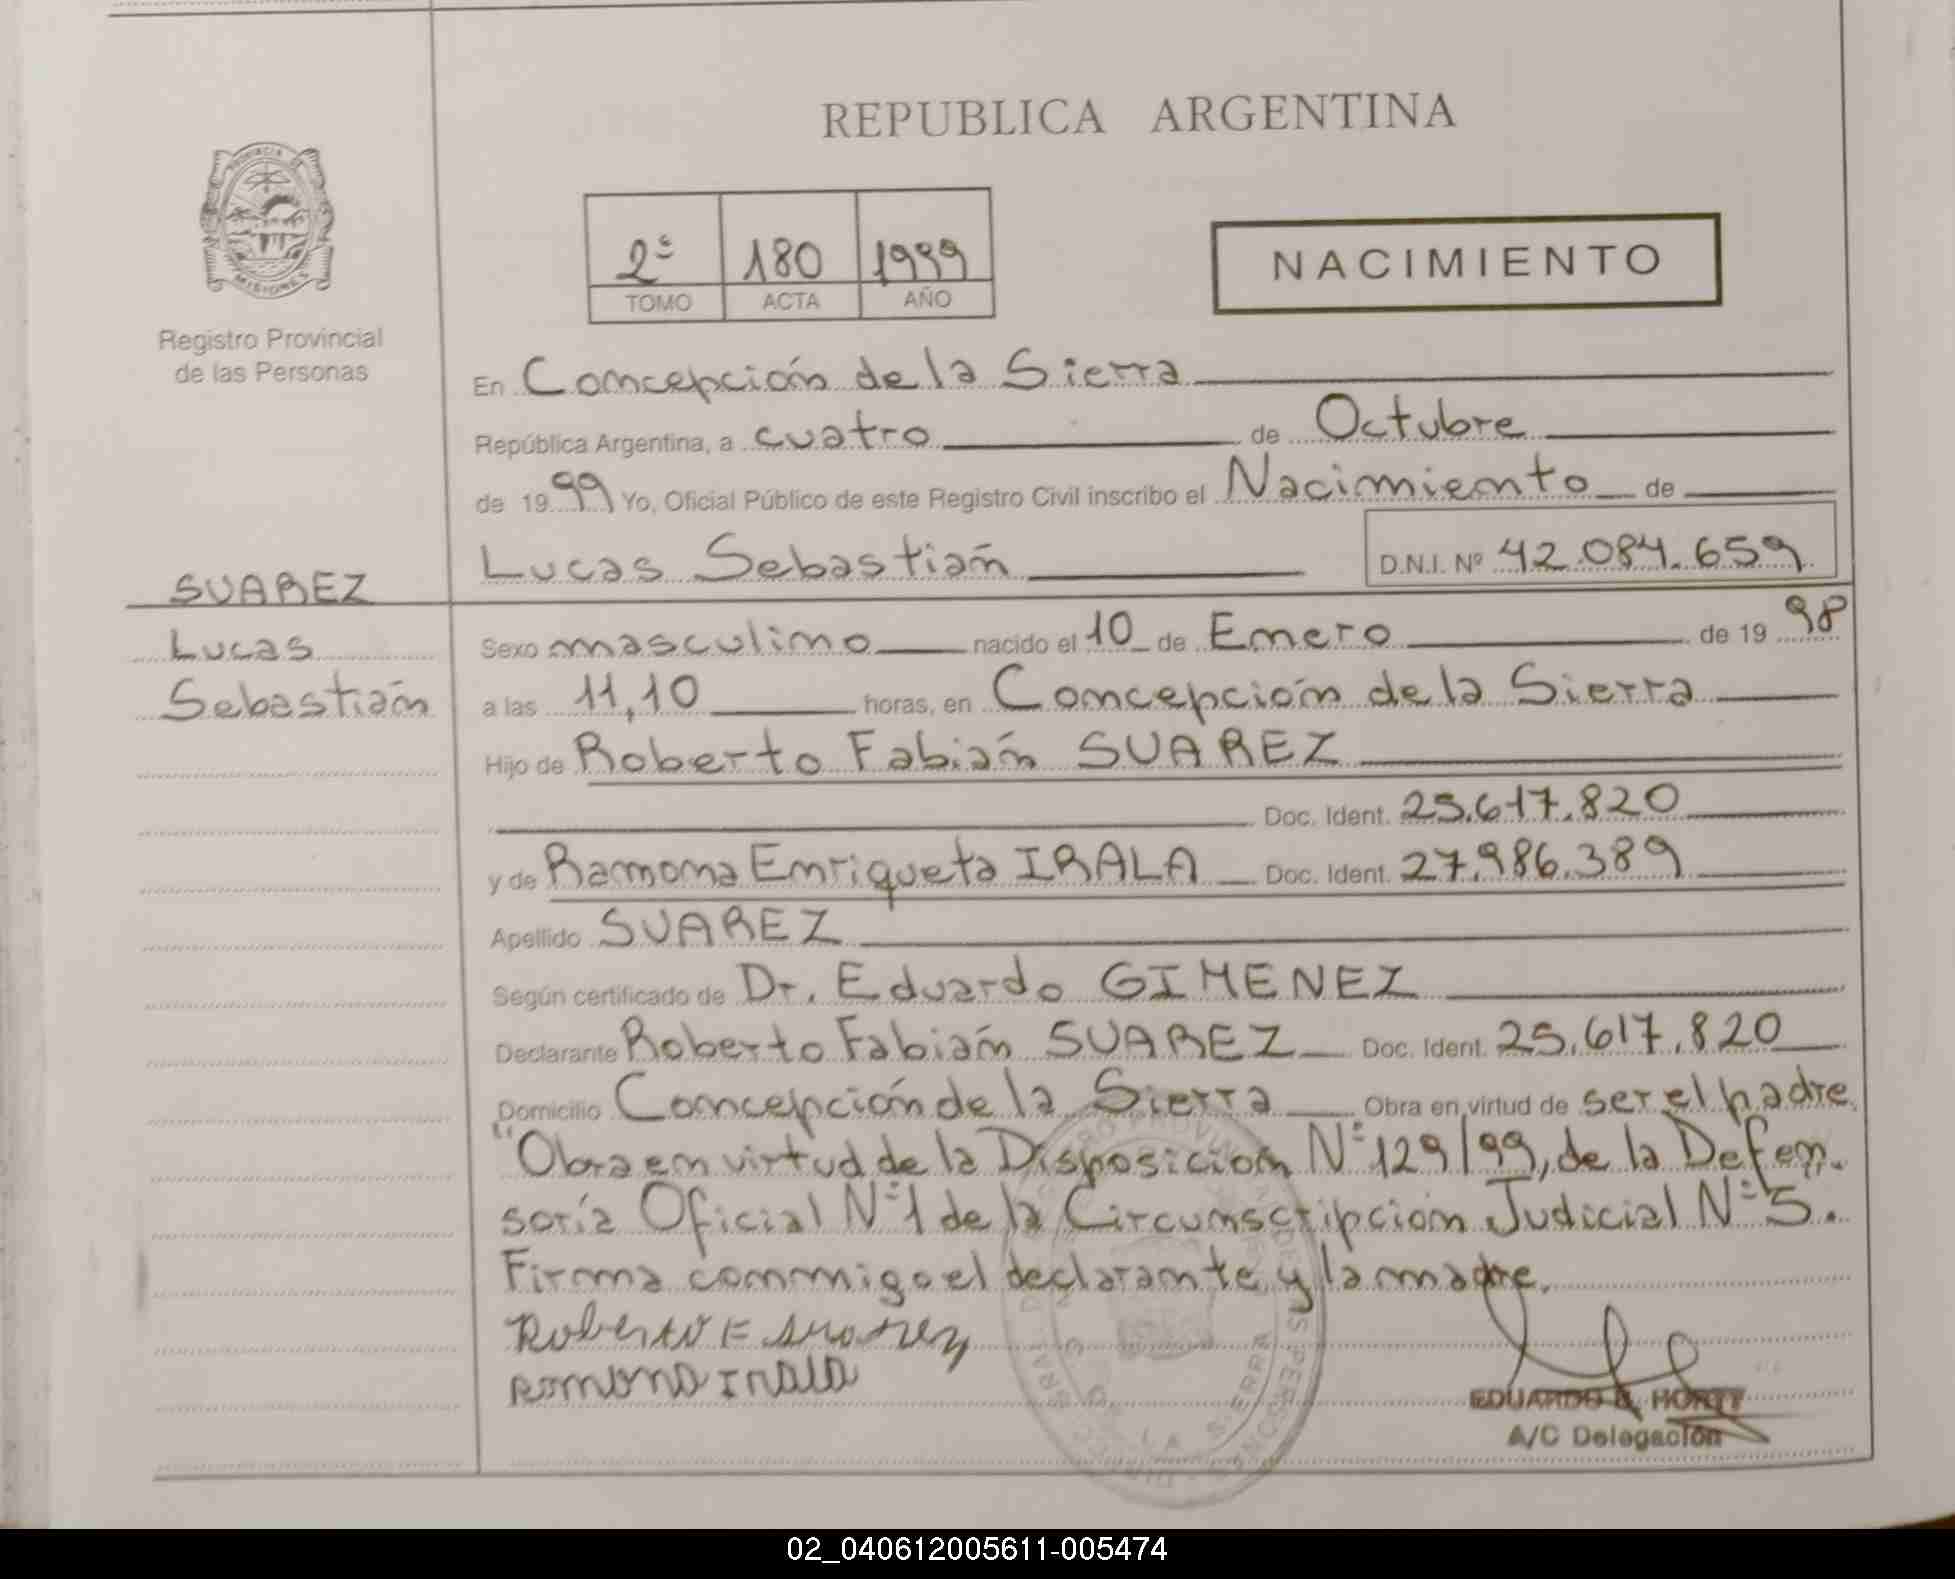 REPUBLICA ARGENTINA
PROVINCIA DE
MISIONES
Registro Provincial
de las Personas
2º 180 1999
TOMO ACTA AÑO
NACIMIENTO
En Concepción de la Sierra
República Argentina, a cuatro de Octubre
de 19 99 Yo, Oficial Público de este Registro Civil inscribo el Nacimiento de
Lucas Sebastián D.N.I. Nº 42.084.659
SUAREZ
Lucas
Sebastián
Sexo masculino nacido el 10 de Enero de 19 98
a las 11,10 horas, en Concepción de la Sierra
Hijo de Roberto Fabián SUAREZ
Doc. Ident. 25.617.820
y de Ramona Enriqueta IRALA Doc. Ident. 27.986.389
Apellido SUAREZ
Según certificado de Dr. Eduardo GIMENEZ
Declarante Roberto Fabián SUAREZ Doc. Ident. 25.617.820
Domicilio Concepción de la Sierra Obra en virtud de ser el padre.
"Obra en virtud de la Disposición Nº 129/99, de la Defen-
soría Oficial Nº 1 de la Circunscripción Judicial Nº 5.
Firma conmigo el declarante y la madre.
Roberto F Suarez
Ramona Irala
LA SIERRA
EDUARDO
A/C Delegación
02_040612005611-005474